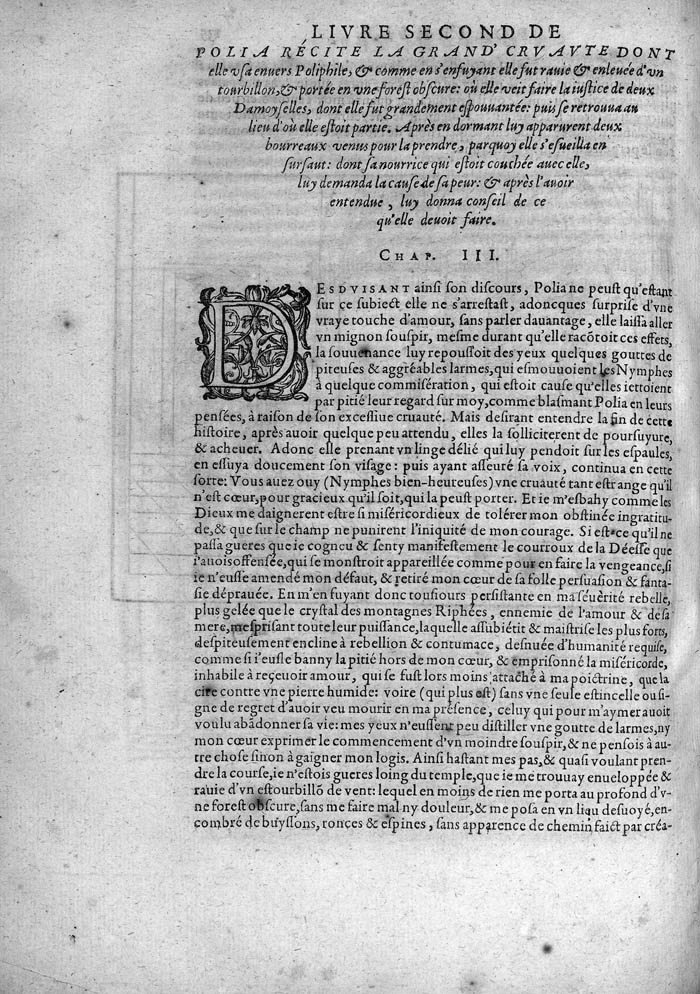 LIVRE SECOND DE
POLIA RÉCITE LA GRAND' CRVAVTE DONT
elle vsa enuers Poliphile, & comme en s'enfuyant elle fut rauie & enleuée d'vn
tourbillon, & portée en vne forest obscure: où elle veit faire la iustice de deux
Damoyselles, dont elle fut grandement espouuantée: puis se retrouua au
lieu d'où elle estoit partie. Après en dormant luy apparurent deux
bourreaux venus pour la prendre, parquoy elle s'esueilla en
sursaut: dont sa nourrice qui estoit couchée auec elle,
luy demanda la cause de sa peur: & après l'auoir
entendue, luy donna conseil de ce
qu'elle deuoit faire.
CHAP. III.
DESDVISANT ainsi son discours, Polia ne peust qu'estant
sur ce subiect elle ne s'arrestast, adoncques surprise d'vne
vraye touche d'amour, sans parler dauantage, elle laissa aller
vn mignon souspir, mesme durant qu'elle racõtoit ces effets,
la souuenance luy repoussoit des yeux quelques gouttes de
piteuses & aggréables larmes, qui esmouuoient les Nymphes
à quelque commisération, qui estoit cause qu'elles iettoient
par pitié leur regard sur moy, comme blasmant Polia en leurs
pensées, à raison de son excessiue cruauté. Mais desirant entendre la fin de cette
histoire, après auoir quelque peu attendu, elles la solliciterent de poursuyure,
& acheuer. Adonc elle prenant vn linge délié qui luy pendoit sur les espaules,
en essuya doucement son visage: puis ayant asseuré sa voix, continua en cette
sorte: Vous auez ouy (Nymphes bien-heureuses) vne cruauté tant estrange qu'il
n'est cœur, pour gracieux qu'il soit, qui la peust porter. Et ie m'esbahy comme les
Dieux me daignerent estre si miséricordieux de tolérer mon obstinée ingratitu-
de, & que sur le champ ne punirent l'iniquité de mon courage. Si est-ce qu'il ne
passa gueres que ie cogneu & senty manifestement le courroux de la Déesse que
i'auois offensée, qui se monstroit appareillée comme pour en faire la vengeance, si
ie n'eusse amendé mon défaut, & retiré mon cœur de sa folle persuasion & fanta-
sie déprauée. En m'en fuyant donc tousiours persistante en ma séuérité rebelle,
plus gelée que le crystal des montagnes Riphées, ennemie de l'amour & de sa
mere, mesprisant toute leur puissance, laquelle assubiétit & maistrise les plus forts,
despiteusement encline à rebellion & contumace, desnuée d'humanité requise,
comme si i'eusse banny la pitié hors de mon cœur, & emprisonné la miséricorde,
inhabile à reçeuoir amour, qui se fust lors moins attaché à ma poictrine, que la
cire contre vne pierre humide: voire (qui plus est) sans vne seule estincelle ou si-
gne de regret d'auoir veu mourir en ma présence, celuy qui pour m'aymer auoit
voulu abãdonner sa vie: mes yeux n'eussent peu distiller vne goutte de larmes, ny
mon cœur exprimer le commencement d'vn moindre souspir, & ne pensois à au-
tre chose sinon à gaigner mon logis. Ainsi hastant mes pas, & quasi voulant pren-
dre la course, ie n'estois gueres loing du temple, que ie me trouuay enueloppée &
rauie d'vn estourbillõ de vent: lequel en moins de rien me porta au profond d'v-
ne forest obscure, sans me faire mal ny douleur, & me posa en vn lieu desuoyé, en-
combré de buyssons, ronces & espines, sans apparence de chemin faict par créa-